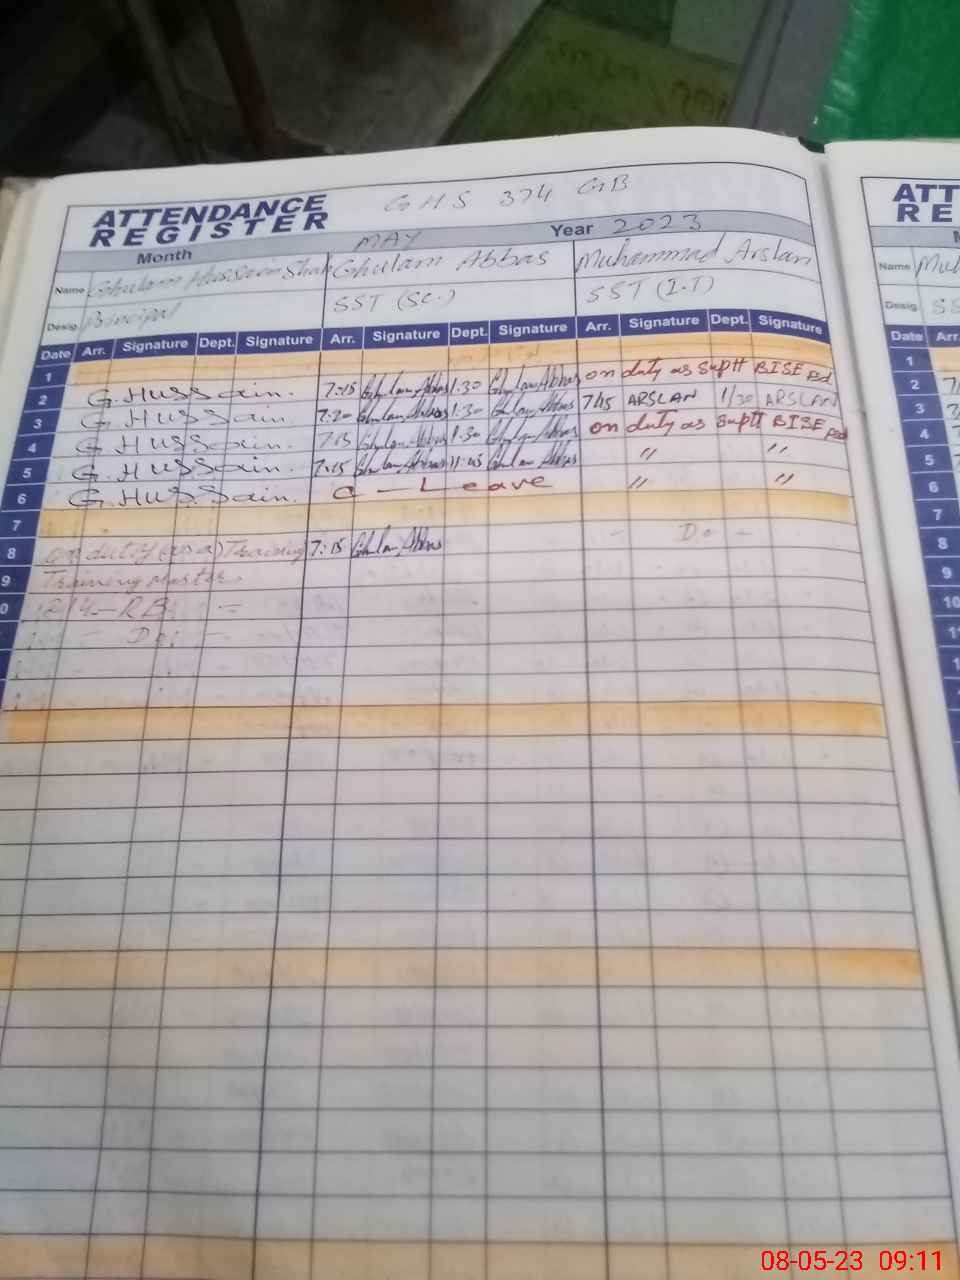 GHS 374 GB
ATTENDANCE
REGISTER
Month MAY Year 2023
Name Ghulam Hussain Shah Ghulam Abbas Muhammad Arslan
Desig. Principal SST (Sc.) SST (I.T)
Date Arr. Signature Dept. Signature Arr. Signature Dept. Signature Arr. Signature Dept. Signature
1
2 G.HUSSain. 7:15 Ghulam Abbas 1:30 Ghulam Abbas on duty as Suptt BISE Fsd
3 G.HUSSain. 7:20 Ghulam Abbas 1:30 Ghulam Abbas 7/15 ARSLAN 1/30 ARSLAN
4 G.HUSSain. 7:15 Ghulam Abbas 1:30 Ghulam Abbas on duty as Suptt BISE Fsd
5 G.HUSSain. 7:15 Ghulam Abbas 11:45 Ghulam Abbas " "
6 G.HUSSain. C - Leave " "
7
8 on duty (as a) Training 7:15 Ghulam Abbas - Do -
9 Training Master
0 214-RB -
- Do -
ATT
RE
Name Muh
Desig. SS
Date Arr.
1
2 7/
3
4
5
6
7
8
9
10
11
08-05-23 09:11